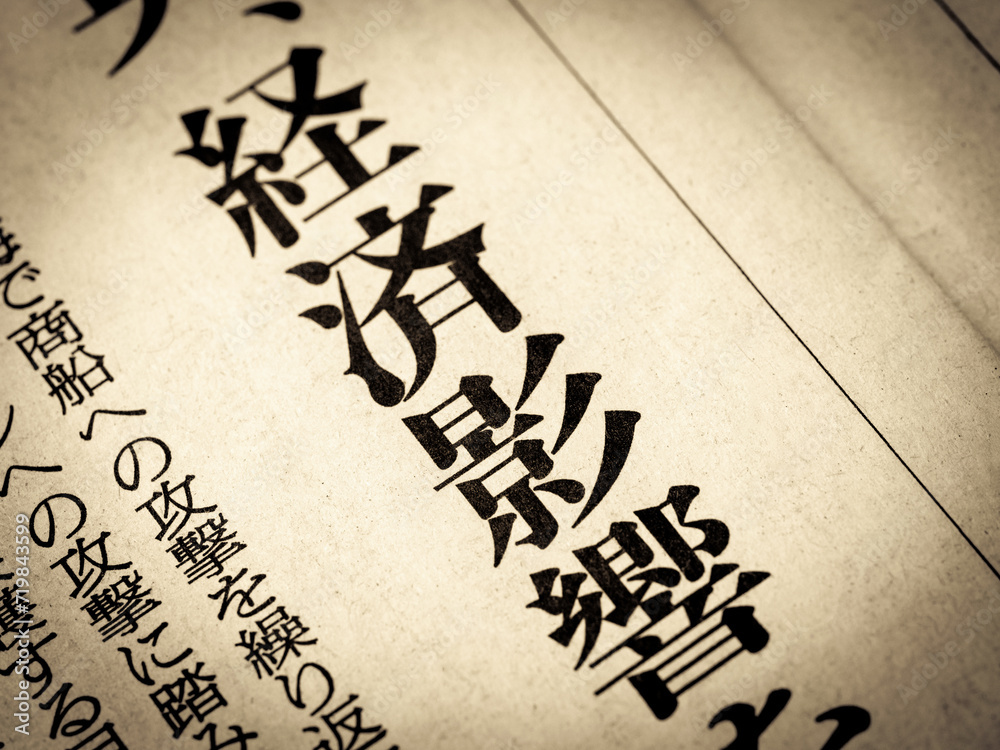 経済影響
まで商船への攻撃を繰り返
への攻撃に踏み
する
Adobe Stock | #719843599